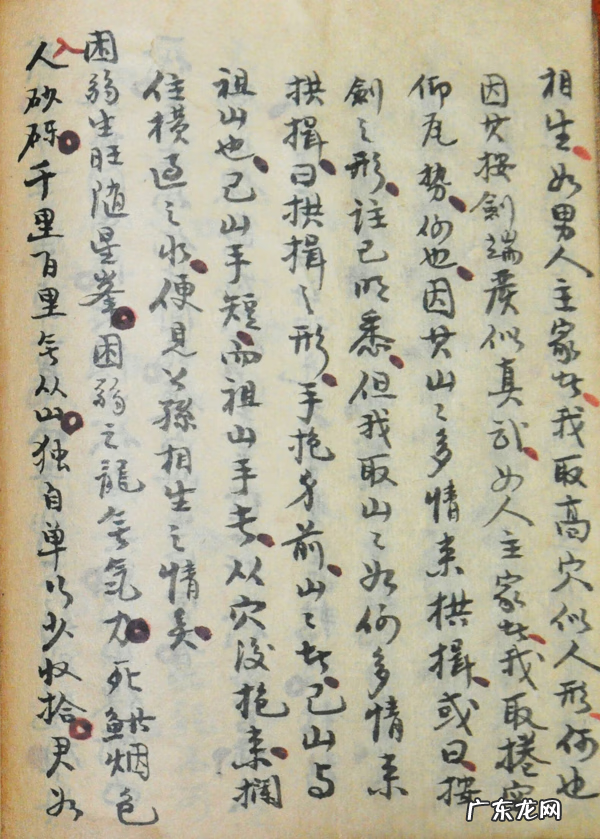 相生如男人主家者我取高穴似人形何也
因其按劍端嚴似真武女人主家者我取捲窩
仰瓦势何也因其山之多情来拱揖或曰按
劍之形註已明悉但我取山之如何多情来
拱揖曰拱揖之形手抱身前山之者己山与
祖山也己山手短而祖山手长从穴後抱来攔
住横过之水便見公孫相生之情矣
困弱生旺随星峯困弱之龍無氣力死烟包
入砂砾千里百里無从山独自单行少收拾君如
广东龙网